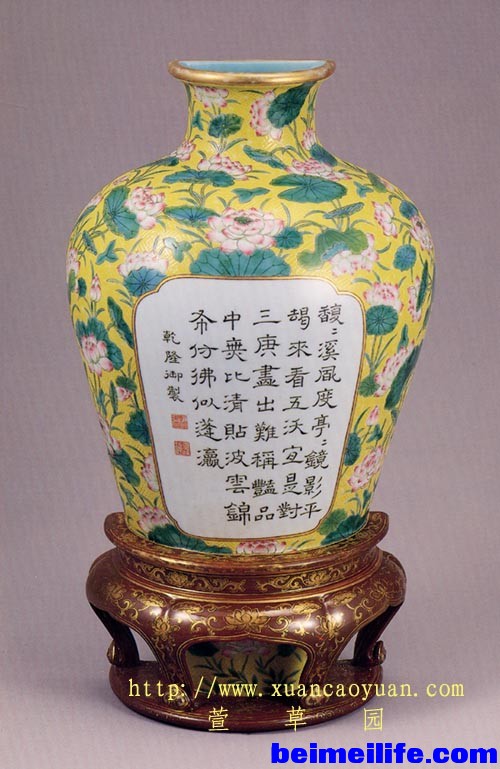 馥〻溪風度亭〻鏡影平
朅來看五沃宜是對
三庚盡出難稱豔品
中無比清貼波雲錦
布仿彿似蓬瀛
乾隆御製
http://www.xuancaoyuan.com
萱草园
beimeilife.com